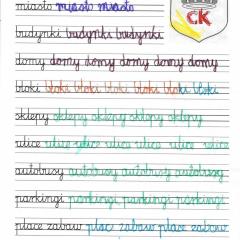 miasto miasto miasto
CK
budynki budynki budynki
domy domy domy domy domy
bloki bloki bloki bloki bloki bloki
sklepy sklepy sklepy sklepy sklepy
ulice ulice ulice ulice ulice ulice
autobusy autobusy autobusy autobusy
parkingi parkingi parkingi parkingi
place zabaw place zabaw place zabaw